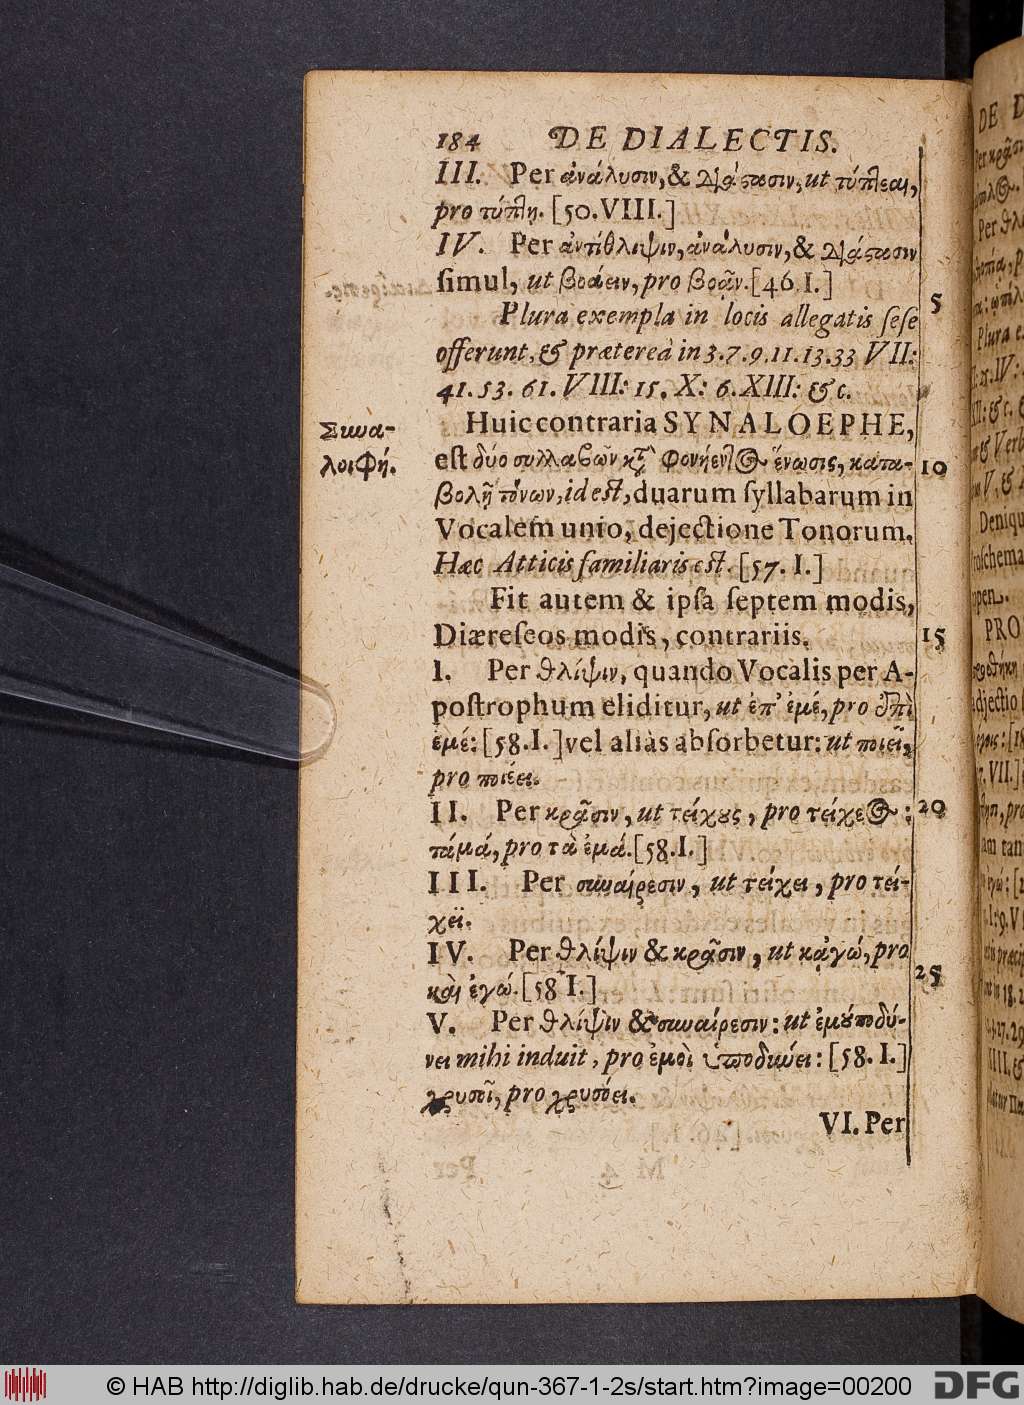 184 DE DIALECTIS.
III. Per ἀνάλυσιν, & διάστασιν, ut τύπτεαι,
pro τύπτῃ. [50.VIII.]
IV. Per ἀντίθλιψιν, ἀνάλυσιν, & διάστασιν
ſimul, ut βοάειν, pro βοᾷν. [46.I.]
Plura exempla in locis allegatis ſeſe
5
offerunt, & prætereà in 3.7.9.11.13.33 VII:
41.53.61.VIII: 15.X: 6.XIII: &c.
Huic contraria SYNALOEPHE,
Συνα-
λοιφή.
eſt δύο συλλαβῶν κτ̃ φονήεντος ἕνωσις, κατα-
10
βολῇ τόνων, id eſt, duarum ſyllabarum in
Vocalem unio, dejectione Tonorum.
Hæc Atticis familiaris eſt. [57.I.]
Fit autem & ipſa ſeptem modis,
Diæreſeos modis, contrariis.
15
I. Per θλίψιν, quando Vocalis per A-
poſtrophum eliditur, ut ἐπ' ἐμέ, pro ἐπὶ
ἐμέ: [58.I.] vel aliàs abſorbetur: ut ποιεῖ,
pro ποιέει.
II. Per κρᾶσιν, ut τείχους, pro τείχεος:
20
τἀμά, pro τὰ ἐμά. [58.I.]
III. Per συναίρεσιν, ut τείχει, pro τεί-
χεϊ.
IV. Per θλίψιν & κρᾶσιν, ut κἀγώ, pro
καὶ ἐγώ. [58 I.]
25
V. Per θλίψιν & συναίρεσιν: ut ἐμοὑποδύ-
νει mihi induit, pro ἐμοὶ ὑποδύνει: [58.I.]
χρυσοῖ, pro χρυσόει.
VI. Per
© HAB http://diglib.hab.de/drucke/qun-367-1-2s/start.htm?image=00200
DFG